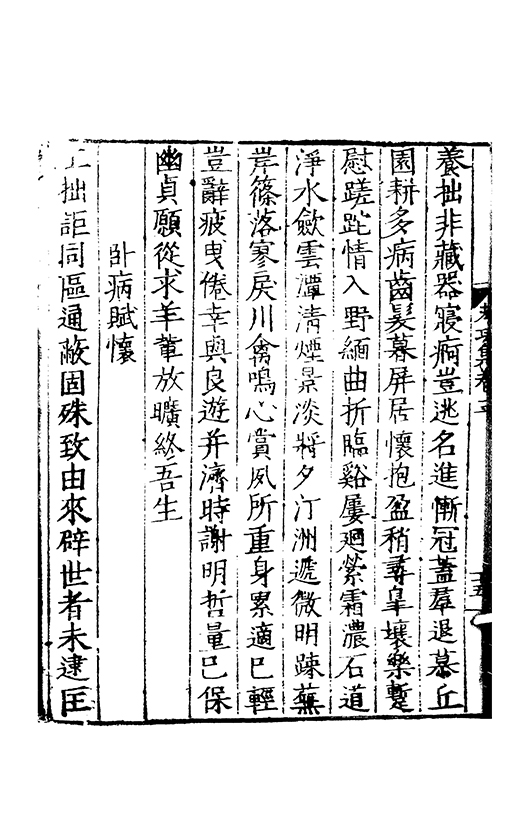 養拙非藏器寢痾豈逃名進慚冠蓋羣退慕丘
園耕多病齒髮暮屏居懷抱盈稍尋皐壤樂蹔
慰蹉跎情入野緬曲折臨谿屢廻縈霜濃石道
淨水斂雲潭清煙景淡將夕汀洲遞微明踈蕪
岸篠落寥戾川禽鳴心賞夙所重身累適巳輕
豈辭疲曳倦幸與良遊并濟時謝明哲量巳保
幽貞願從求羊輩放曠終吾生
卧病賦懷
拙詎同區通蔽固殊致由來辟世者未逮匡